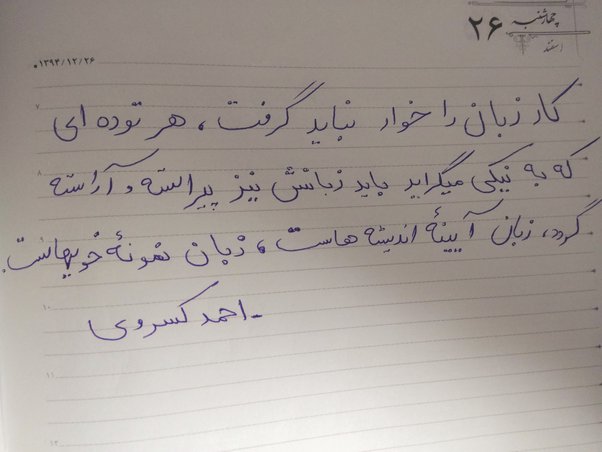 چهارشنبه
۲۶
اسفند
۱۳۹۴/۱۲/۲۶
۷
کار زبان را خوار نباید گرفت، هر توده ای
۸
که به نیکی میگراید باید زبانش نیز پیراسته و آراسته
گردد، زبان آیینهٔ اندیشه هاست، زبان نمونهٔ خویهاست.
۱۰
- احمد کسروی
۱۱
۱۲